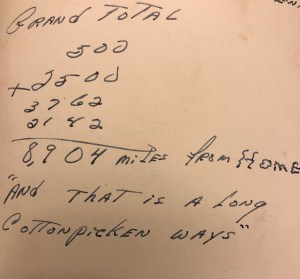 GRAND TOTAL
500
+2500
3762
2142
8,904 miles from HOME
"And THAT is A Long
COTTONPICKEN WAYS"